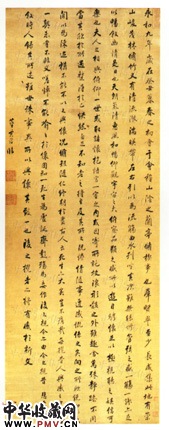 永和九年歲在癸丑暮春之初會于會稽山陰之蘭亭脩禊事也羣賢畢至少長咸集此地有崇
山峻嶺茂林脩竹又有清流激湍暎帶左右引以為流觴曲水列坐其次雖無絲竹管弦之盛一觴一詠亦足
以暢敘幽情是日也天朗氣清惠風和暢仰觀宇宙之大俯察品類之盛所以遊目騁懷足以極視聽之娛信可
樂也夫人之相與俯仰一世或取諸懷抱悟言一室之內或因寄所託放浪形骸之外雖趣舍萬殊靜躁不同
當其欣於所遇暫得於己快然自足不知老之將至及其所之既惓情隨事遷感慨係之矣向之所欣俛仰之
間以為陳迹猶不能不以之興懷況脩短隨化終期於盡古人云死生亦大矣豈不痛哉每攬昔人興感之由若合
一契未嘗不臨文嗟悼不能喻之於懷固知一死生為虛誕齊彭殤為妄作後之視今亦由今之視昔悲夫故列敘時
人錄其所述雖世殊事異所以興懷其致一也後之攬者亦將有感於斯文
中华收藏网